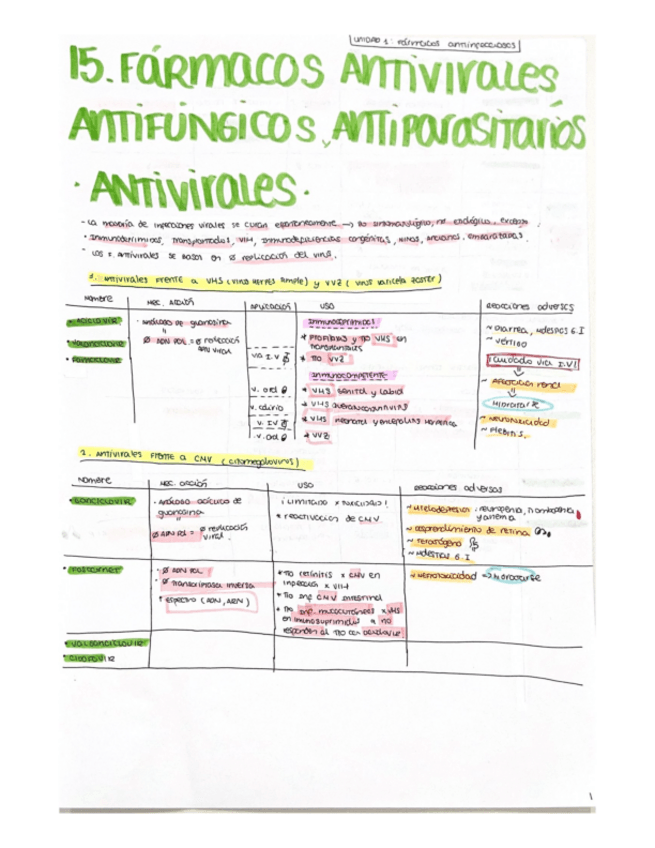 UNIDAD 1: FÁRMACOS ANTIINFECCIOSOS
15. FÁRMACOS ANTIVIRALES
ANTIFÚNGICOS, ANTIPARASITARIOS
· ANTIVIRALES ·
- La mayoría de infecciones virales se curan espontáneamente → no
· Inmunodeprimidos, trasplantados, VIH, inmunodeficiencias congénitas, niños, ancianos, embarazadas.
- Los F. antivirales se basan en Ø replicación del virus.
1. Antivirales frente a VHS (virus herpes simple) y VVZ (virus varicela zoster)
Nombre Mec. acción Aplicación Uso Reacciones adversas
• Aciclovir
• Valaciclovir
• Famciclovir
Análogo de guanosina
Ø ADN POL = Ø replicación
ADN viral
vía I.V
v. oral
v. I.V
v. oral
Inmunodeprimidos
• Profilaxis y TTO VHS en
trasplantados
• TTO VVZ
Inmunocompetente
• VHS genital y labial
• VHS
• VHS neonatal y encefalitis herpética
• VVZ
~ Diarrea, molestias G.I
~ vértigo
¡Cuidado vía I.V!
~ Afectación renal
Hidratarse
~ Neurotoxicidad
~ Flebitis.
2. Antivirales frente a CMV (citomegalovirus)
Nombre Mec. acción Uso Reacciones adversas
• Ganciclovir
· Análogo acíclico de
guanosina
Ø ADN Pol = Ø replicación
viral.
¡Limitado x toxicidad!
• reactivación de CMV
~ Mielodepresión: neutropenia, trombopenia
y anemia
~ Desprendimiento de retina
~ Teratógeno
~ Molestias G.I
• Foscarnet
· Ø ADN POL
· Ø Transcriptasa inversa
• Espectro (ADN, ARN)
• TTO retinitis x CMV en
infección x VIH
• TTO inf CMV intestinal
• TTO inf mucocutánea x VHS
en inmunosuprimidos q no
responden al TTO con aciclovir
~ Nefrotoxicidad → Hidratarse
• Valganciclovir
• Cidofovir
1